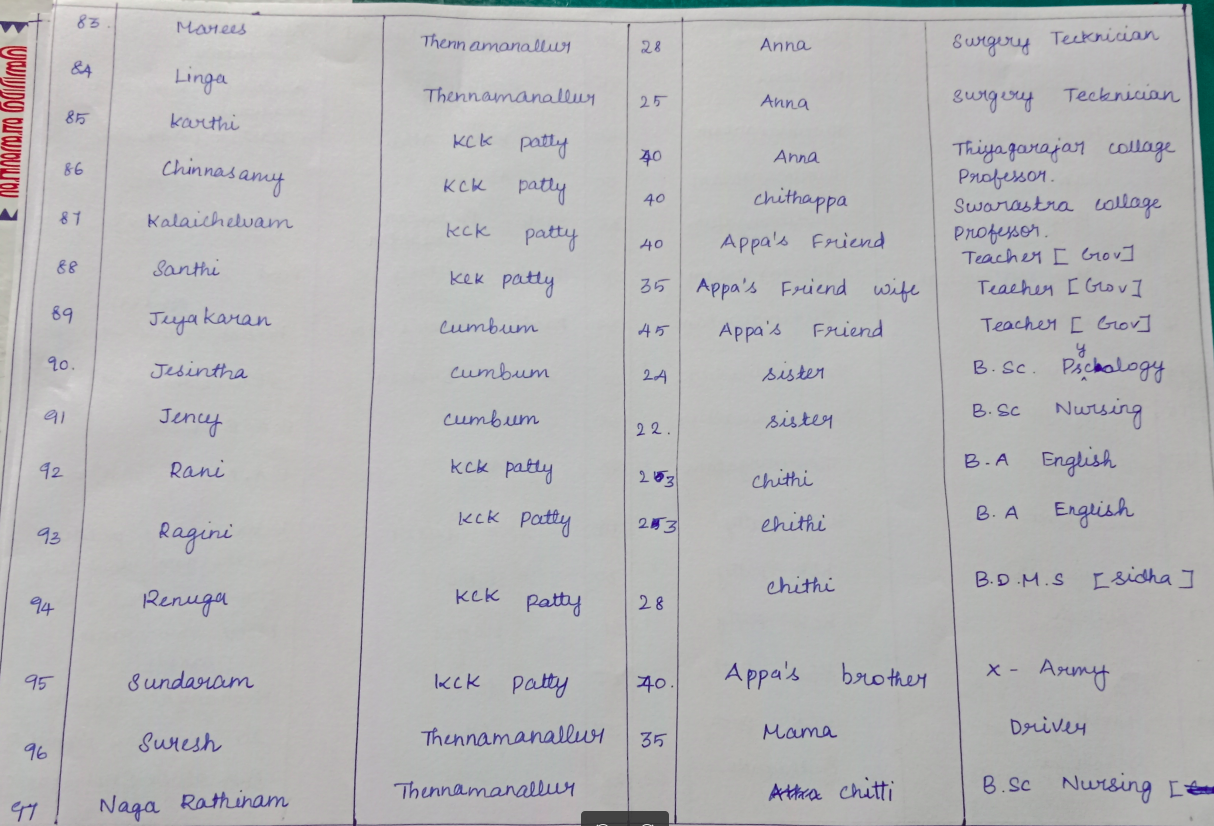 83. Marees Thennamanallur 28 Anna Surgery Tecknician
84 Linga Thennamanallur 25 Anna Surgery Tecknician
85 Karthi KCK patty 40 Anna Thiyagarajar collage Professor.
86 Chinnasamy KCK patty 40 chithappa Swarastra collage professor.
87 Kalaichelvam KCK patty 40 Appa's Friend Teacher [Gov]
88 Santhi KCK patty 35 Appa's Friend wife Teacher [Gov]
89 Jeyakaran cumbum 45 Appa's Friend Teacher [Gov]
90. Jesintha cumbum 24 sister B.Sc. Psychology
91 Jency cumbum 22. sister B.Sc Nursing
92 Rani KCK patty 23 chithi B.A English
93 Ragini KCK Patty 23 chithi B.A English
94 Renuga KCK Patty 28 chithi B.D.M.S [sidha]
95 Sundaram KCK Patty 40. Appa's brother X- Army
96 Suresh Thennamanallur 35 Mama Driver
97 Naga Rathinam Thennamanallur chitti B.Sc Nursing [